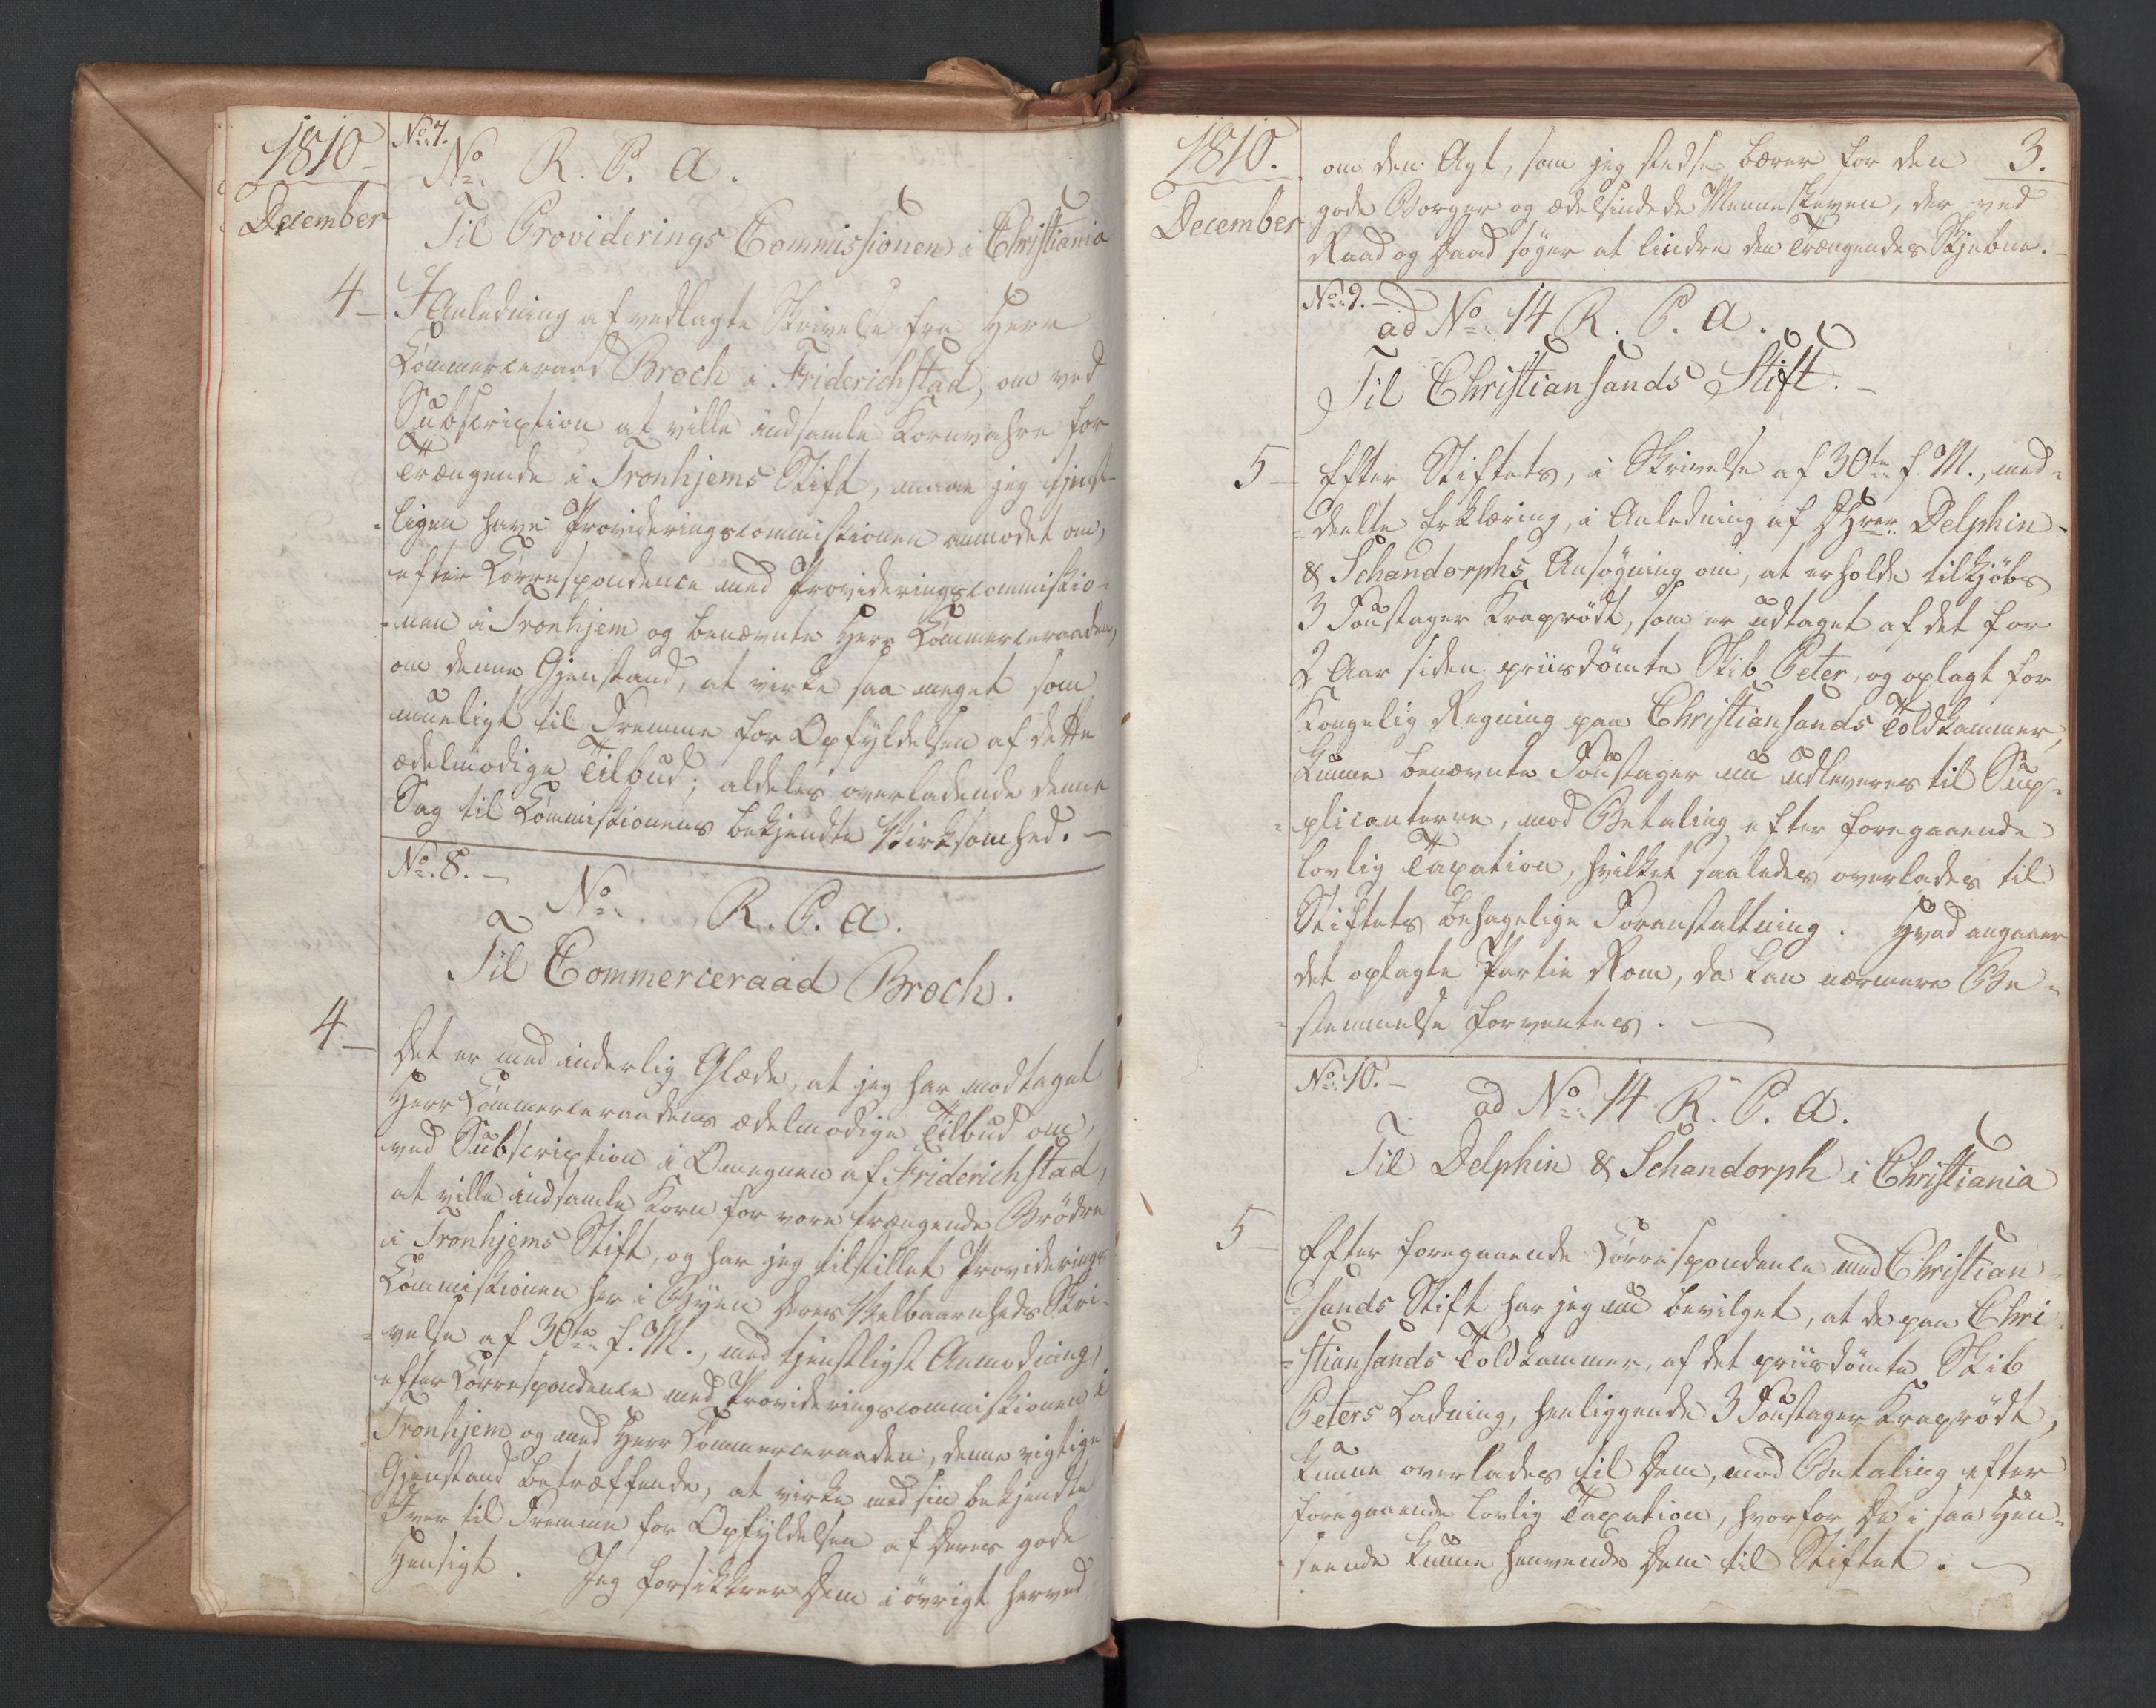 1810
December
No. 7.
No. R. P. A.
Til Providerings Commissionen i Christiania
4 – I Anledning af vedlagte Skrivelse fra Herr
Commerceraad Broch i Friderichstad, om ved
Subscription at ville indsamle Kornvahre for
Trængende i Tronhjems Stift, maae jeg tjenst-
ligen have Provideringscommissionen anmodet om,
efter Correspondence med Provideringscommissio-
nen i Tronhjem og benævnte Herr Commerceraaden,
om denne Gjenstand, at virke saa meget som
mueligt til Fremme for Opfyldelsen af dette
ædelmodige Tilbud; aldeles overladende denne
Sag til Commissionens bekjendte Virksomhed. –
No. 8. –
No. R. P. A.
Til Commerceraad Broch.
4 – Det er med inderlig Glæde, at jeg har modtaget
Herr Commerceraadens ædelmodige Tilbud om,
ved Subscription i Omegnen af Friderichstad,
at ville indsamle Korn for vore trængende Brødre
i Tronhjems Stift, og har jeg tilstillet Providerings
Commissionen her i Byen Deres Velbaarenheds Skri-
velse af 30te f. M., med tjenstligst Anmodning,
efter Correspondence med Provideringscommissionen i
Tronhjem og med Herr Commerceraaden, denne vigtige
Gjenstand betræffende, at virke med sin bekjendte
Iver til Fremme for Opfyldelsen af Deres gode
Hensigt. Jeg forsikkrer Dem i øvrigt herved
1810.
December
3.
om den Agt, som jeg stedse bærer for den
gode Borger og ædelsindede Menneskeven, der ved
Raad og Daad søger at lindre den Trængendes Skjebne. –
No. 9. –
ad No. 14 R. P. A.
Til Christiansands Stift. –
5 – Efter Stiftets, i Skrivelse af 30te f. M., med-
deelte Erklæring, i Anledning af DHrr. Delphin
& Schandorphs Ansøgning om, at erholde tilkjøbs
3 Foustager Kraprødt, som er udtaget af det for
2 Aar siden priisdømte Skib Peter, og oplagt for
Kongelig Regning paa Christiansands Toldkammer,
kunne benævnte Foustager nu udleveres til Sup-
plicanterne, mod Betaling efter foregaaende
lovlig Taxation, hvilket saaledes overlades til
Stiftets behagelige Foranstaltning. Hvad angaaer
det oplagte Partie Rom, da kan nærmere Be-
stemmelse forventes. –
No. 10. –
ad No. 14 R. P. A.
Til Delphin & Schandorph i Christiania
5 – Efter foregaaende Correspondence med Christian
sands Stift har jeg nu bevilget, at de paa Chri-
stiansands Toldkammer, af det priisdømte Skib
Peters Ladning, henliggende 3 Foustager Kraprødt,
kunne overlades til Dem, mod Betaling efter
foregaaende lovlig Taxation, hvorfor De i saa Hen-
seende kunne henvende Dem til Stiftet. –